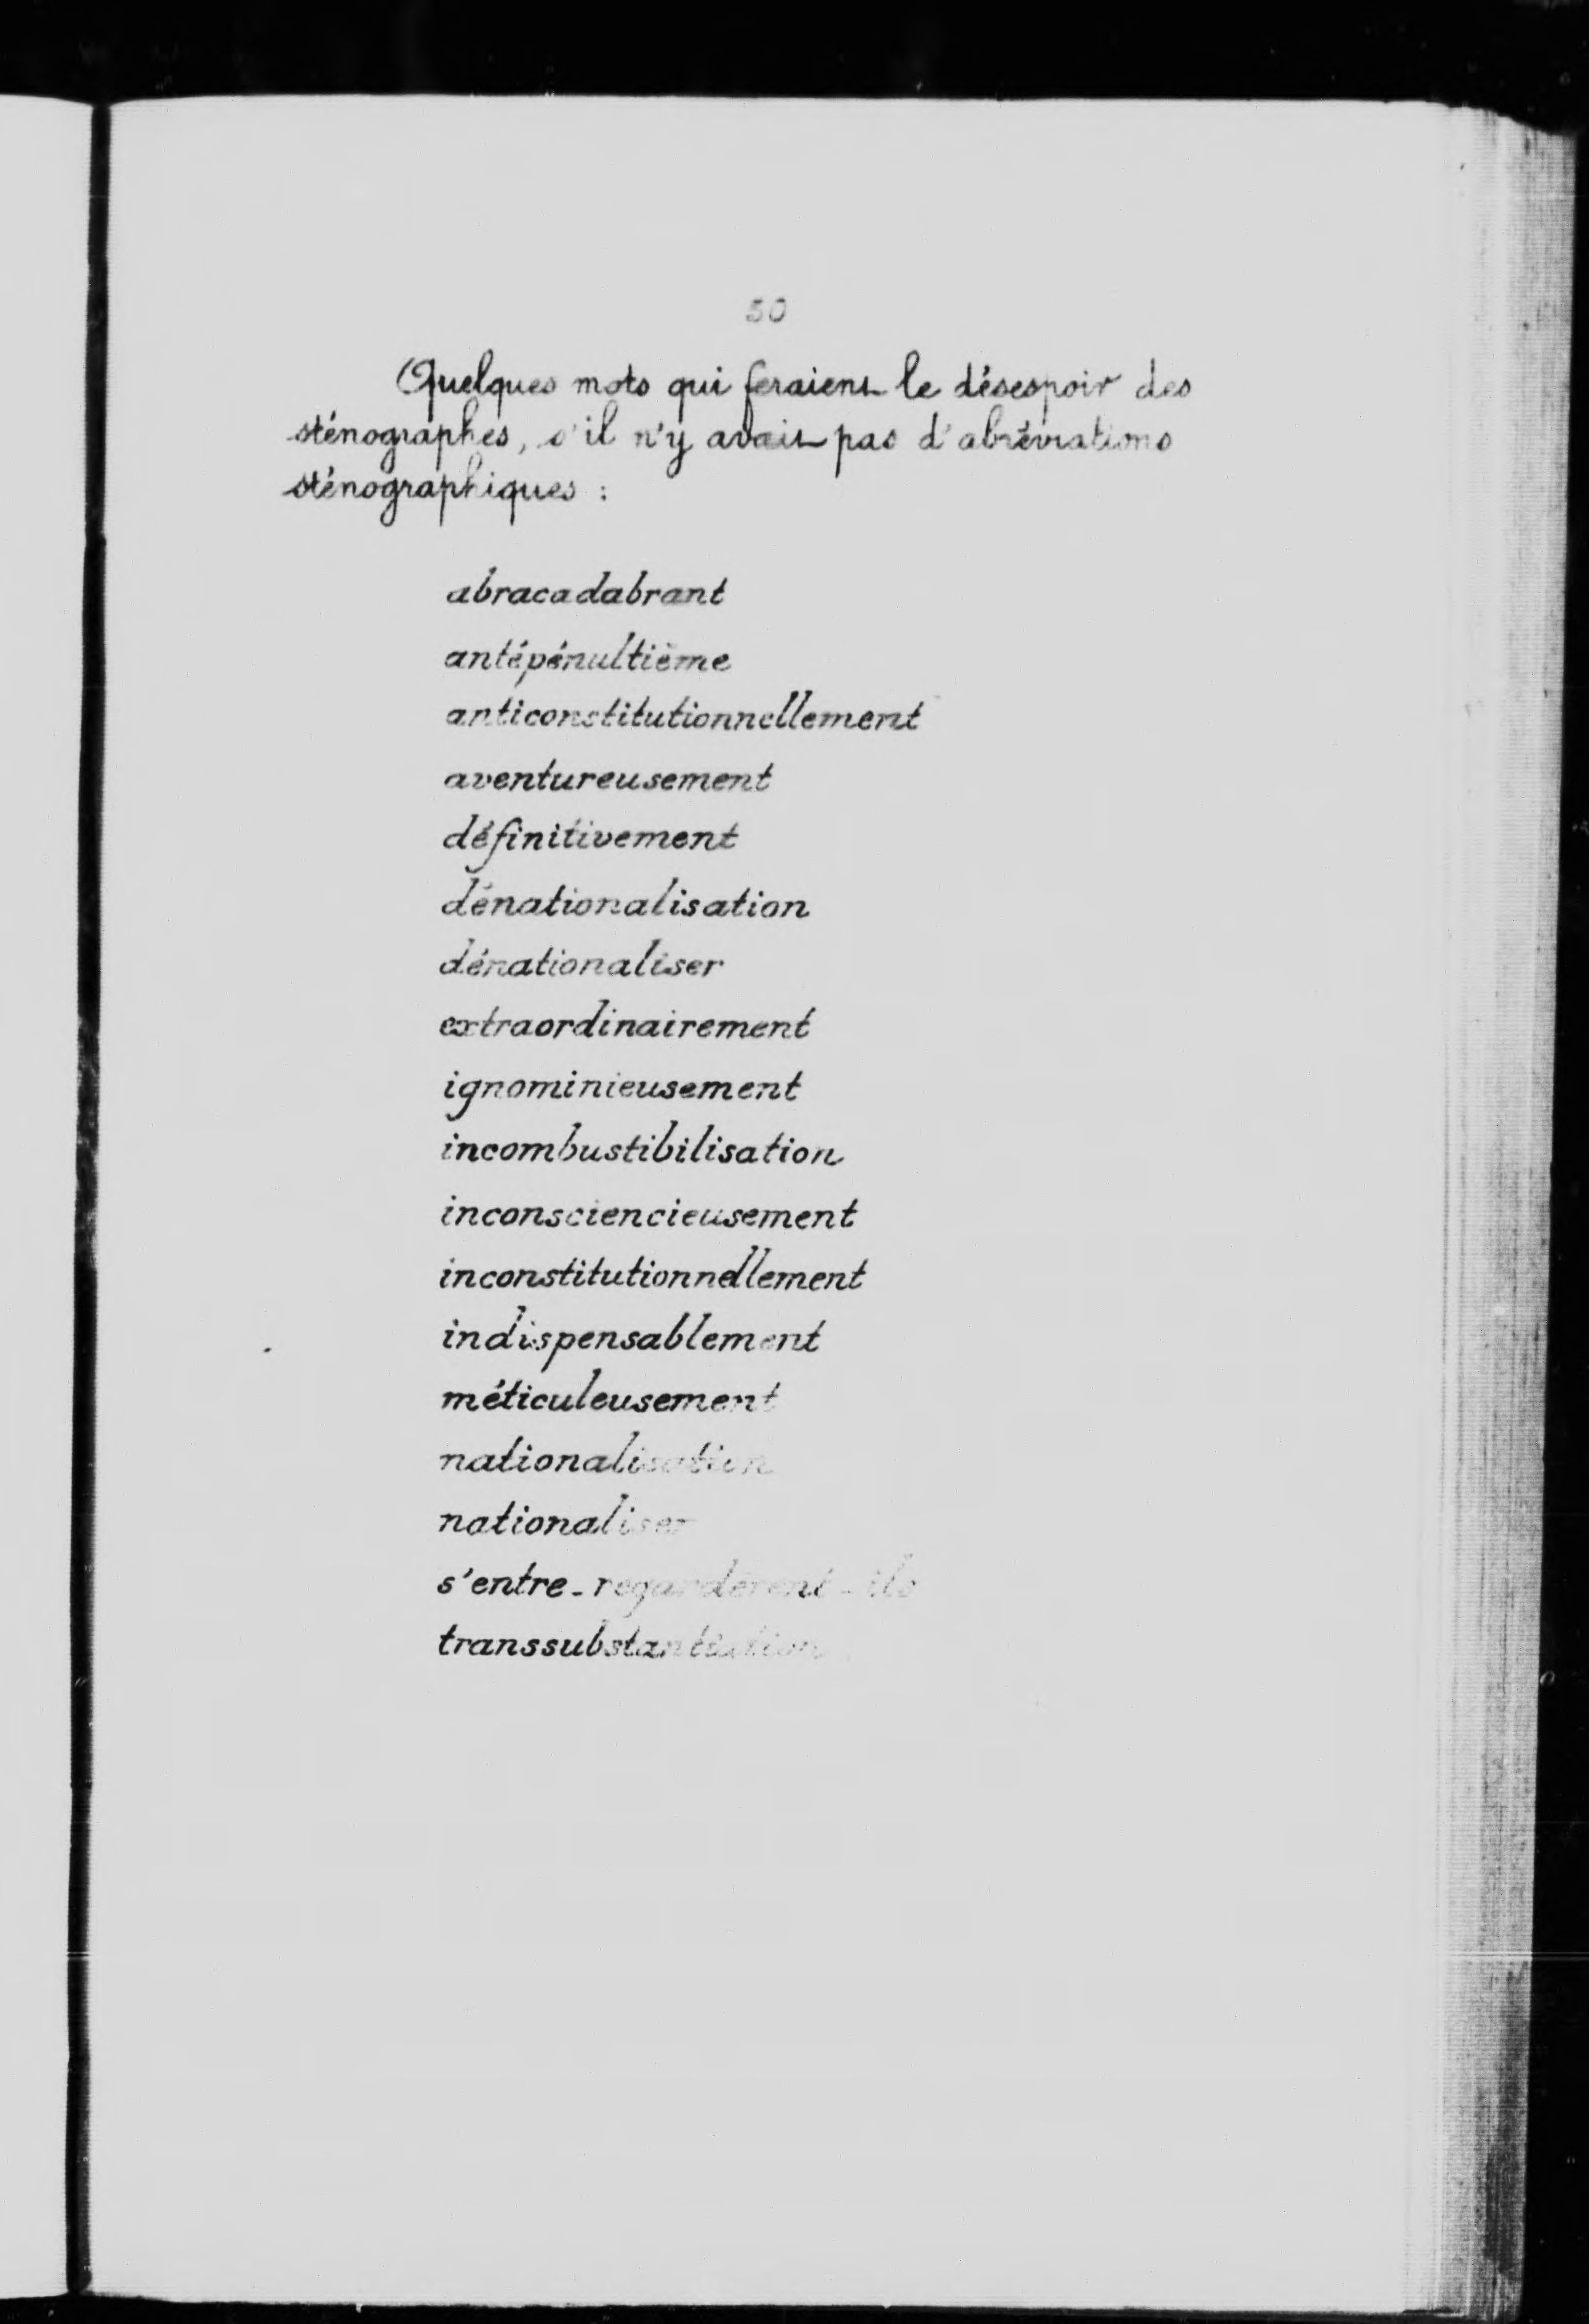 50
Quelques mots qui feraient le désespoir des
sténographes, s'il n'y avait pas d'abréviations
sténographiques :
abracadabrant
antépénultième
anticonstitutionnellement
aventureusement
définitivement
dénationalisation
dénationaliser
extraordinairement
ignominieusement
incombustibilisation
inconsciencieusement
inconstitutionnellement
indispensablement
méticuleusement
nationalisation
nationaliser
s'entre-regardèrent-ils
transsubstantiation